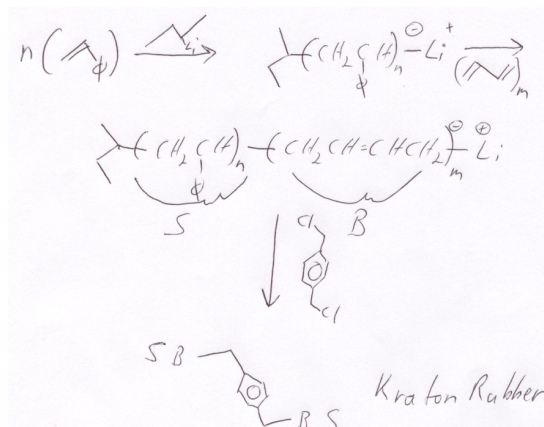 n( ϕ ) Li ( CH₂ CH )ₙ ⊖ Li ⁺ ( )ₘ
ϕ
( CH₂ CH )ₙ ( CH₂ CH=CHCH₂ )ₘ ⊖ Li ⊕
ϕ
S B
Cl
Cl
S B
B S
Kraton Rubber